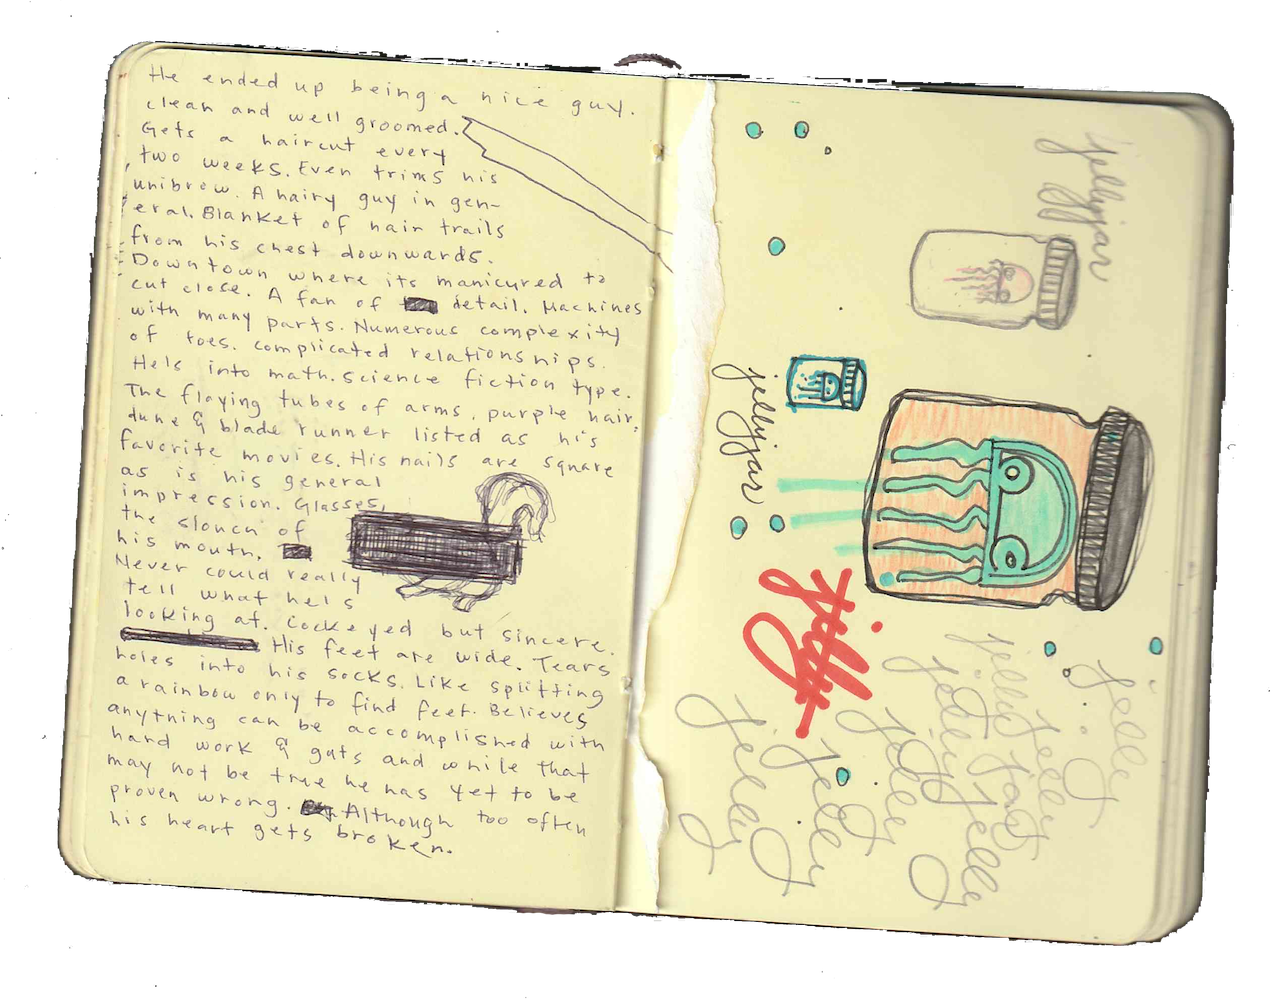 He ended up being a nice guy.
clean and well groomed.
Gets a haircut every
two weeks. Even trims his
unibrow. A hairy guy in gen-
eral. Blanket of hair trails
from his chest downwards.
Downtown where its manicured to
cut close. A fan of detail. Machines
with many parts. Numerous complexity
of toes. complicated relationships.
He's into math. science fiction type.
The flaying tubes of arms. purple hair.
dune & blade runner listed as his
favorite movies. His nails are square
as is his general
impression. Glasses,
the slouch of
his mouth.
Never could really
tell what he's
looking at. Cockeyed but sincere.
His feet are wide. Tears
holes into his socks. Like splitting
a rainbow only to find feet. Believes
anything can be accomplished with
hard work & guts and while that
may not be true he has yet to be
proven wrong. Although too often
his heart gets broken.
jellyjar
jellyjar
jelly
jelly
jelly
jelly
jelly
jelly
jelly
jelly
jelly